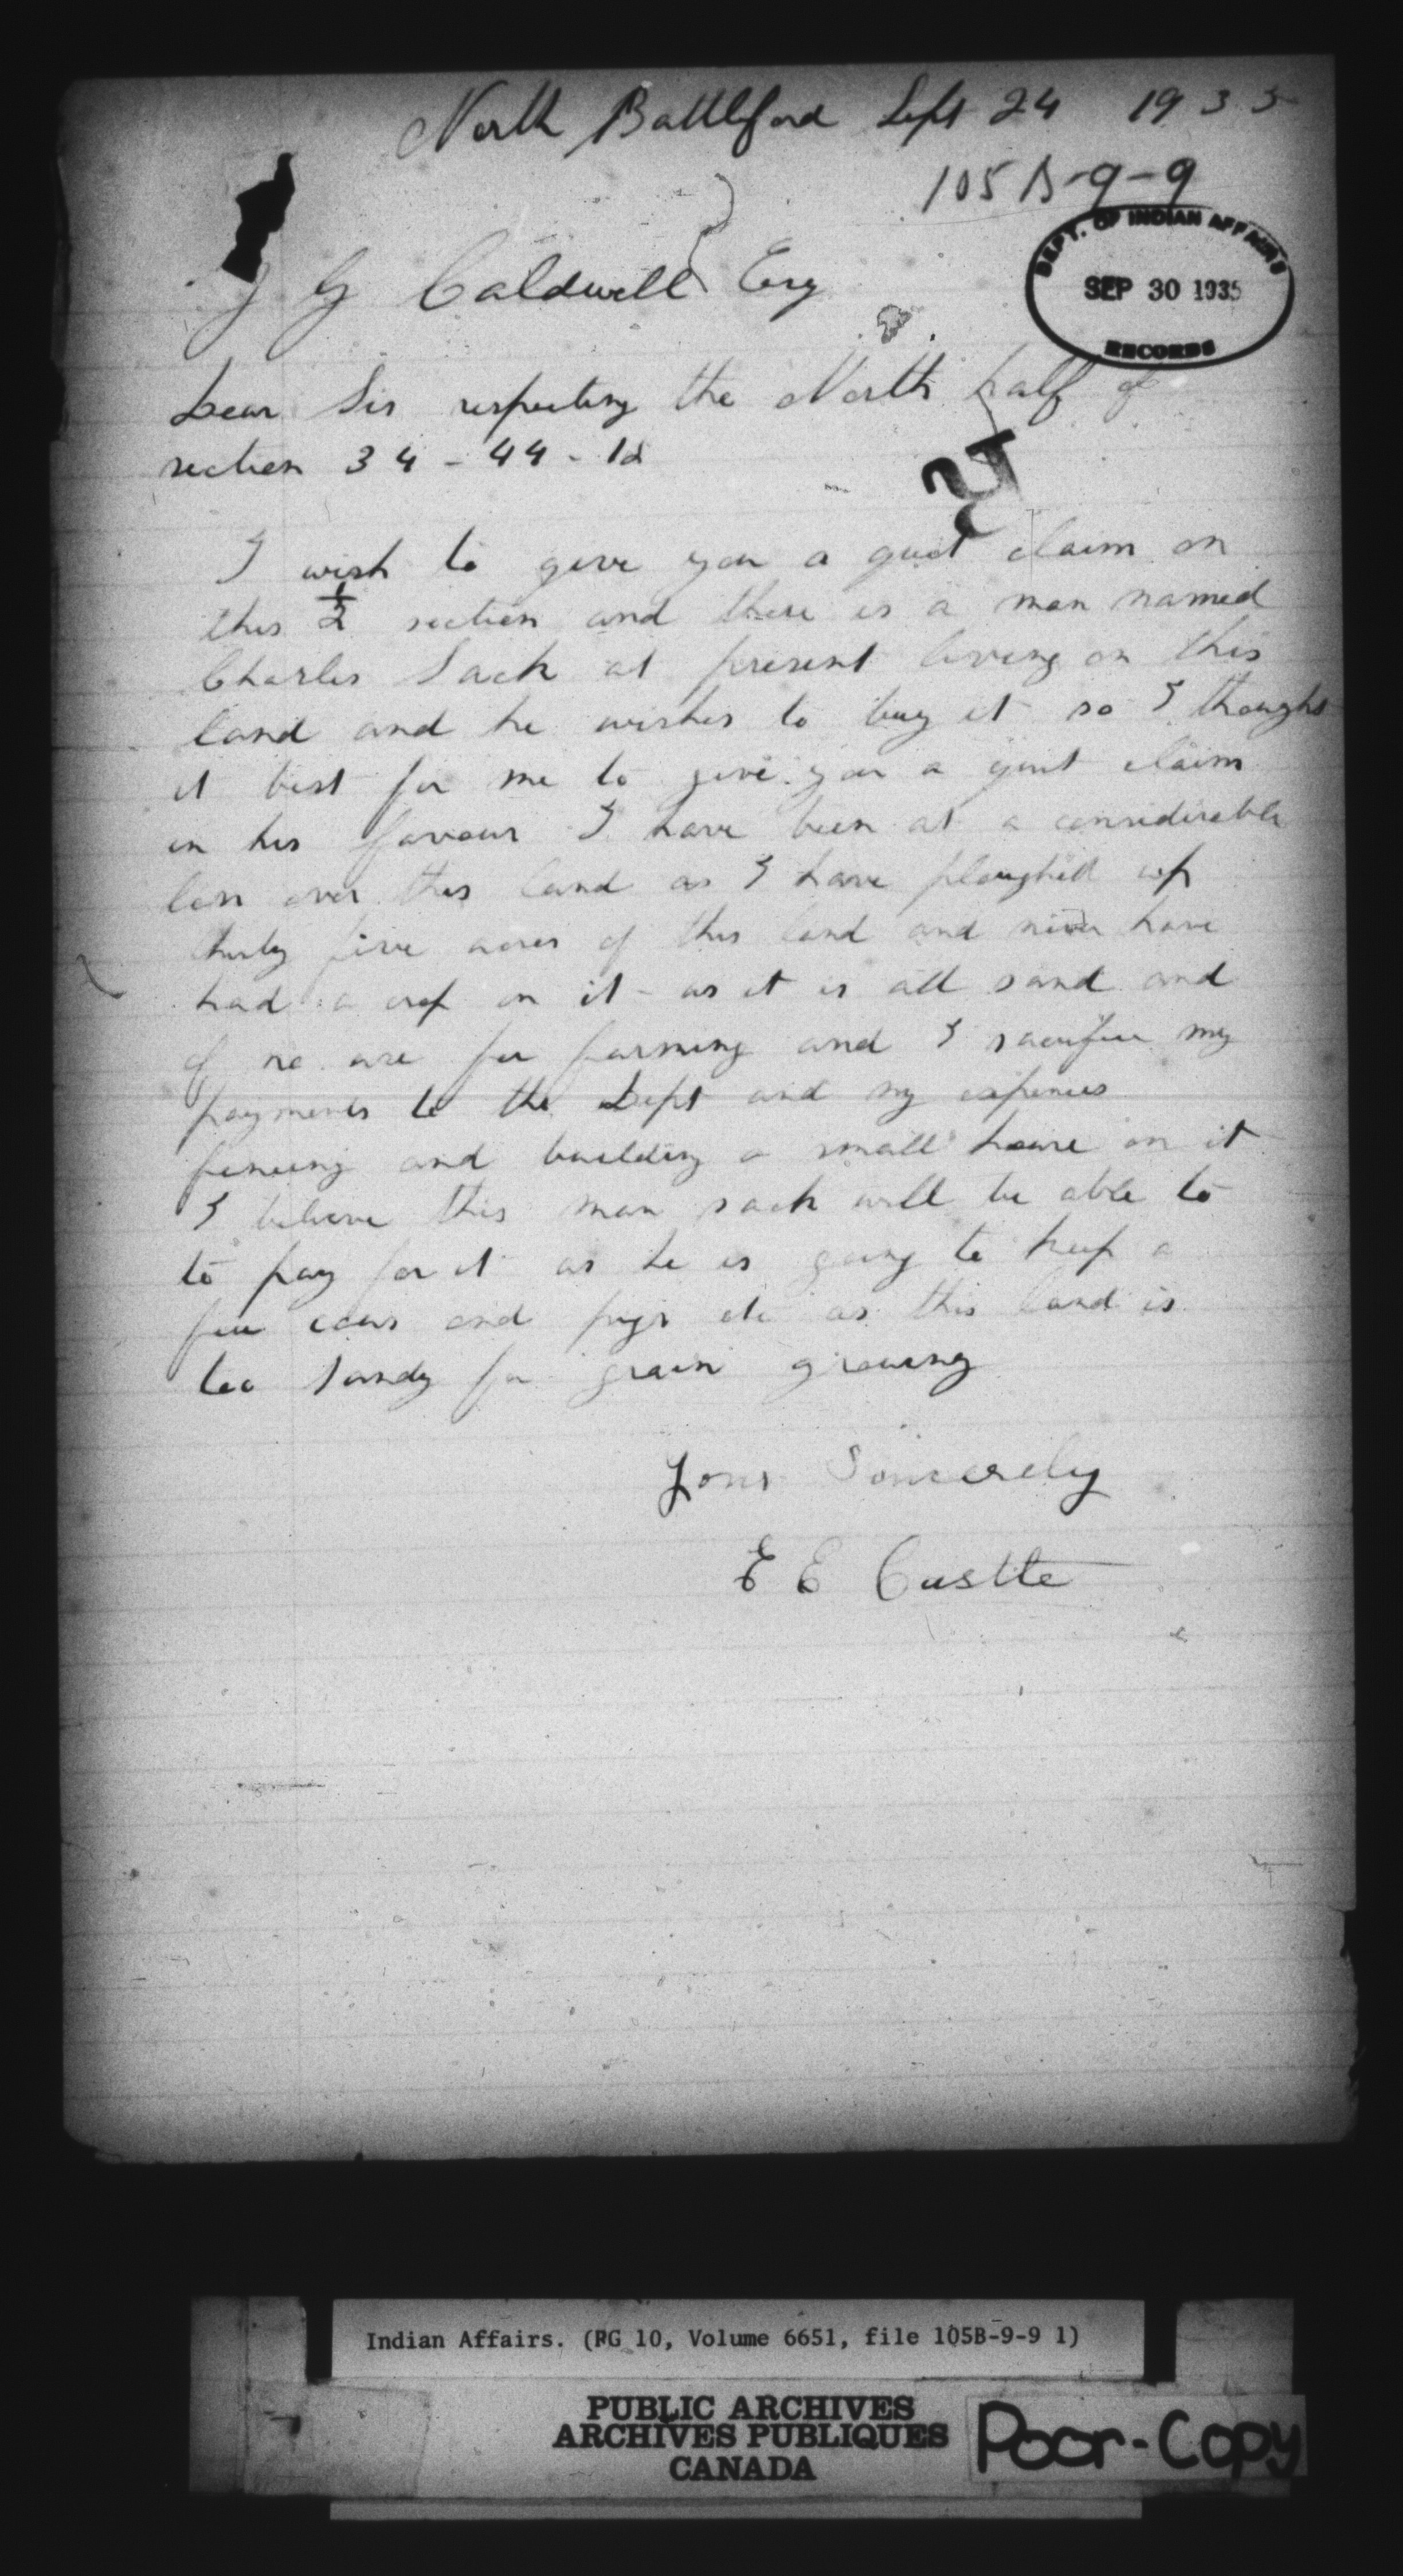 North Battleford Sept 24 1935
105 B-9-9
DEPT. OF INDIAN AFFAIRS
SEP 30 1935
RECORDS
J G Caldwell Esq
Dear Sir respecting the North half of
section 34 - 44 - 18
I wish to give you a quit claim on
this 1/2 section and there is a man named
Charles Sack at present living on this
land and he wishes to buy it so I thought
it best for me to give you a quit claim
in his favour I have been at a considerable
loss over this land as I have ploughed up
thirty five acres of this land and never have
had a crop on it - as it is all sand and
of no use for farming and I sacrifice my
payments to the Dept and my expenses
fencing and building a small house on it
I believe this man sack will be able to
to pay for it as he is going to keep a
few cows and pigs etc as this land is
too sandy for grain growing
Yours Sincerely
E E Castle
Indian Affairs. (RG 10, Volume 6651, file 105B-9-9 1)
PUBLIC ARCHIVES
ARCHIVES PUBLIQUES
CANADA
Poor-Copy